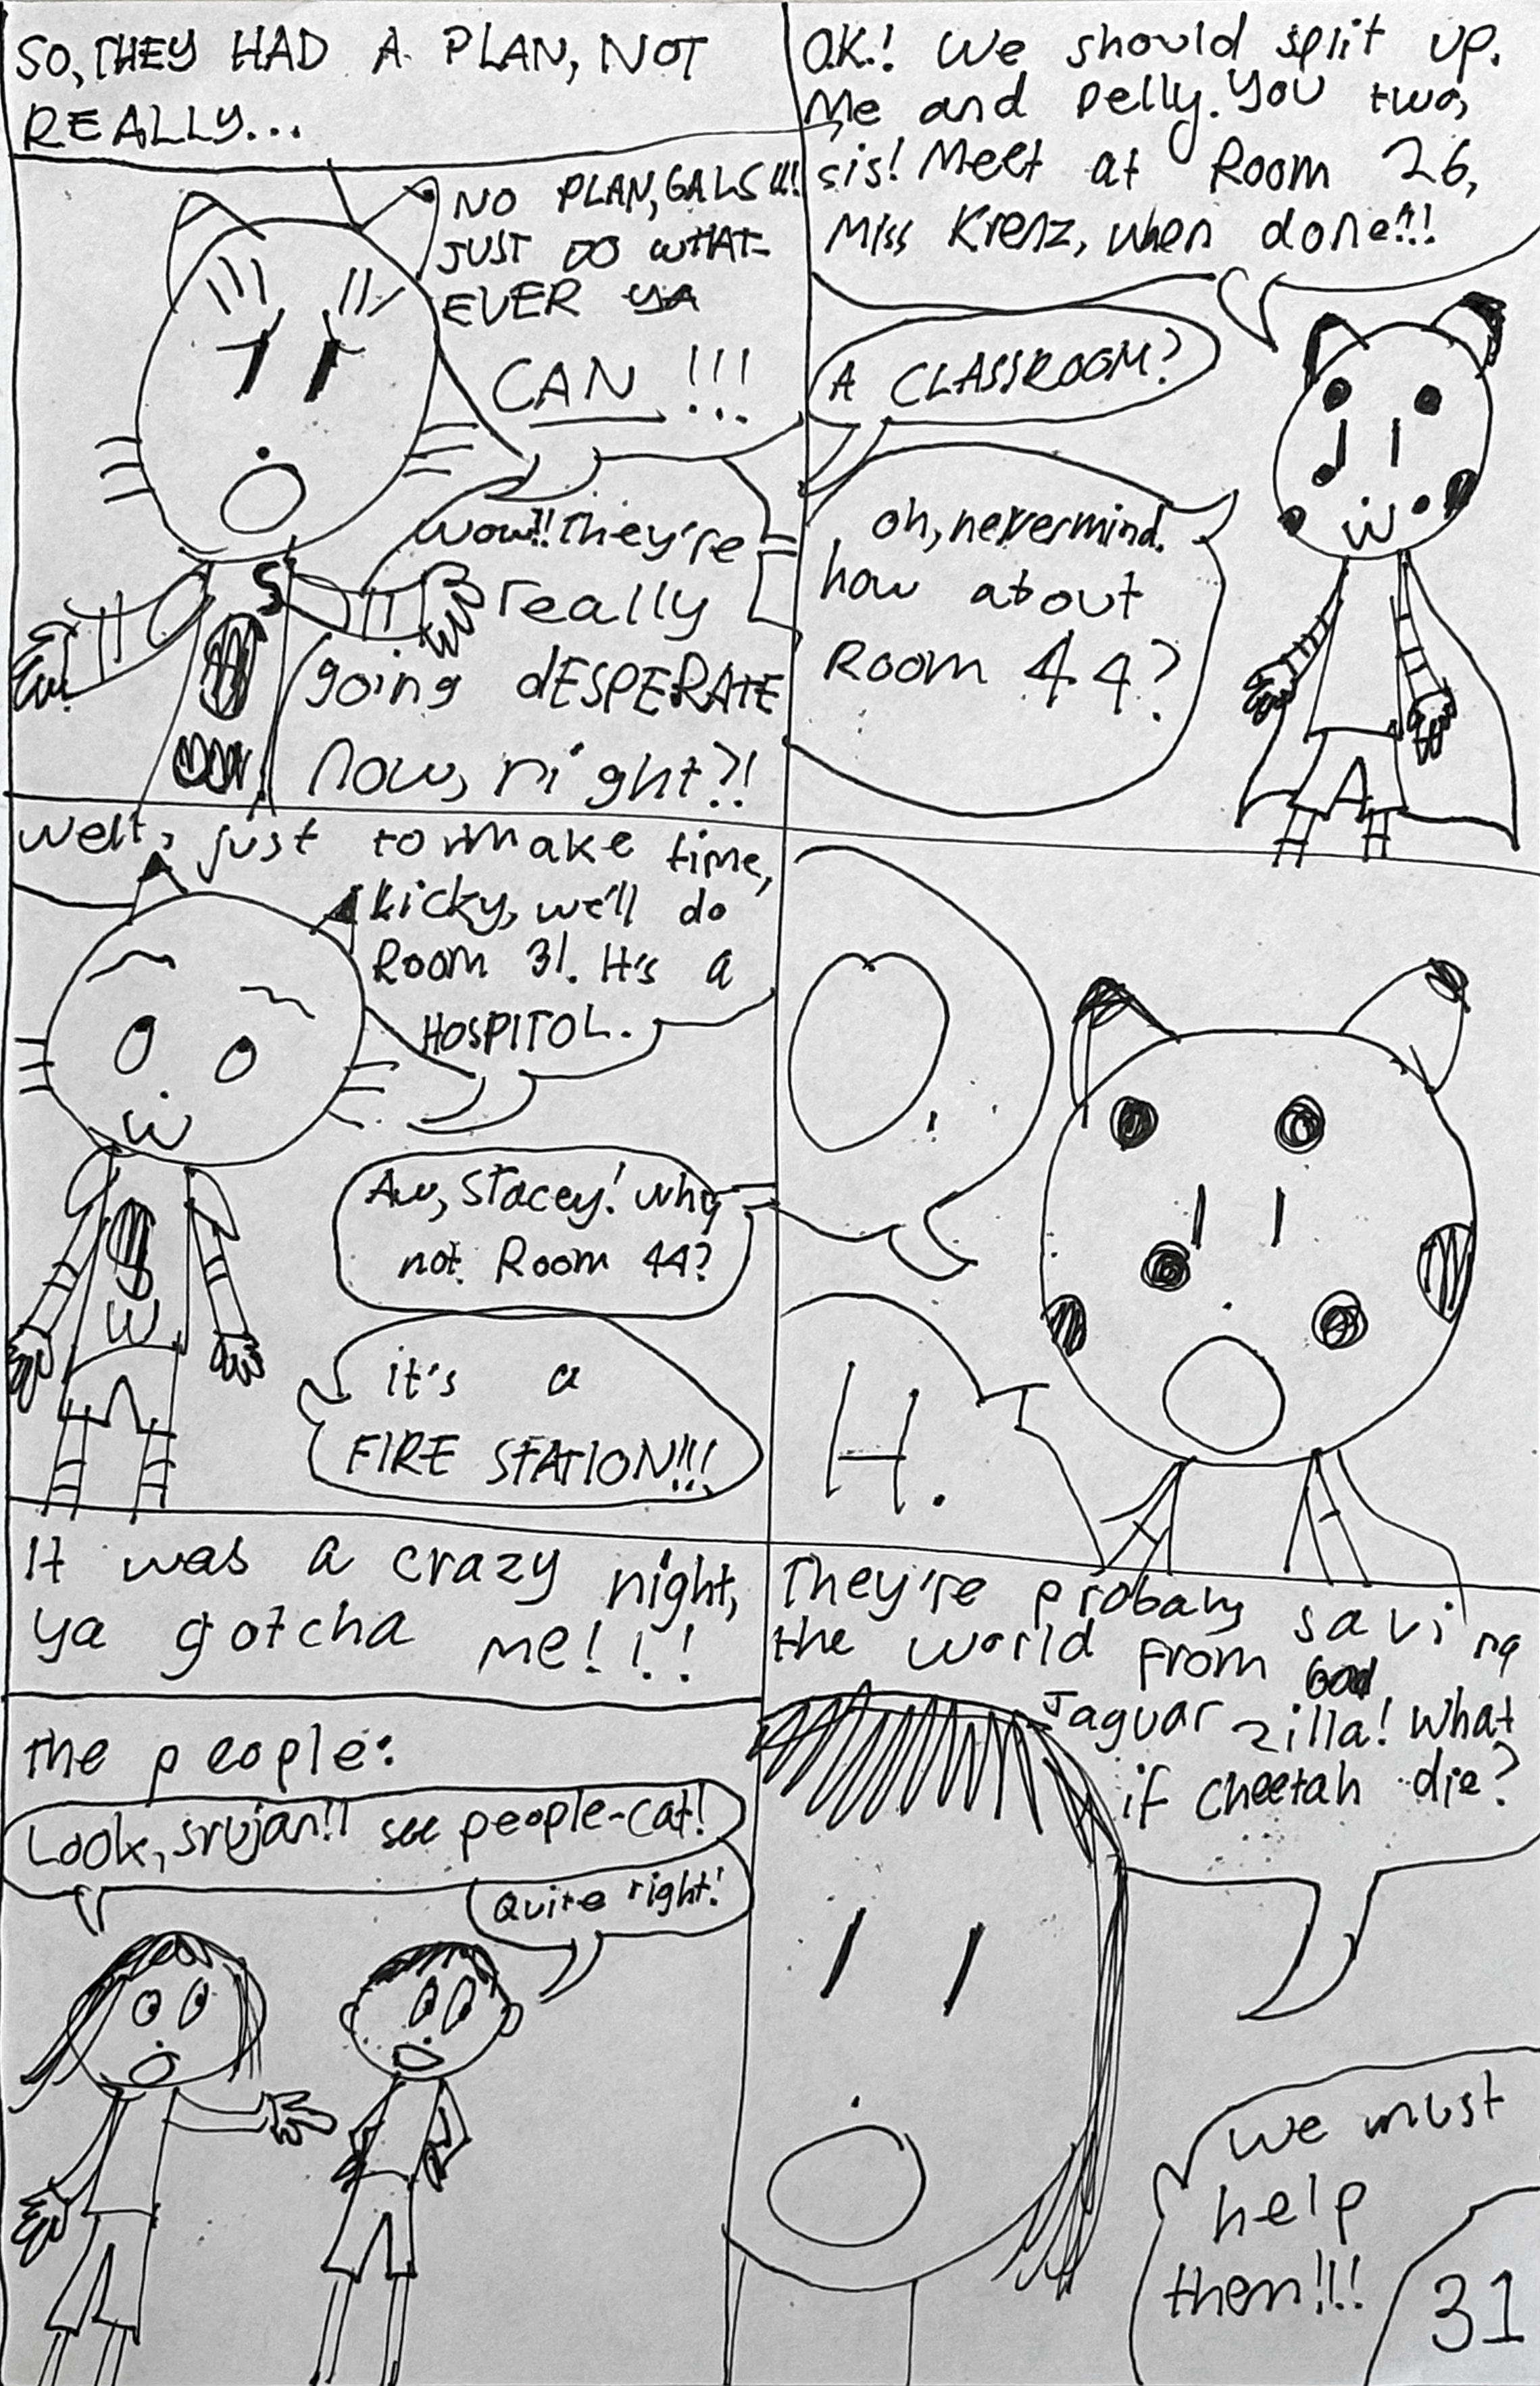 SO, THEY HAD A PLAN, NOT
REALLY...
NO PLAN, GALS!!!
JUST DO WHAT-
EVER YA
CAN !!!
wow!! They're
really
going dESPERATE
now, right?!
O.K.! We should split up.
Me and Pelly. You two,
sis! Melt at Room 26,
Miss Krenz, when done!!!
A CLASSROOM?
oh, nevermind.
how about
Room 44?
Well, just to make time,
kicky, we'll do
Room 31. It's a
HOSPITOL.
Aw, Stacey! why
not Room 44?
it's a
FIRE STATION!!!
O.
H.
It was a crazy night,
ya gotcha me!!!
the people:
Look, srujan! I see people-cat!
Quite right!
They're probaly saving
the world from
Jaguar zilla! What
if cheetah die?
we must
help
them!!!
31